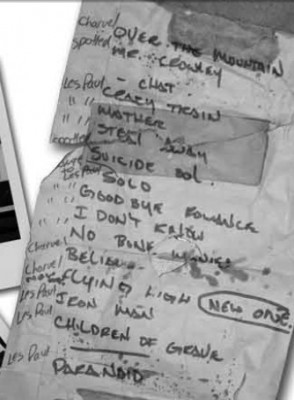 Charvel OVER THE MOUNTAIN
spotted MR. CROWLEY
Les Paul - CHAT -
" " CRAZY TRAIN
" " MOTHER
" " STEAL AWAY
SUICIDE SOL.
Les Paul SOLO
" " GOODBYE ROMANCE
" " I DON'T KNOW
" " NO BONE MOVIES
Charvel BELIEVER
Charvel FLYING HIGH NEW ONE
Les Paul IRON MAN
Les Paul CHILDREN OF GRAVE
Les Paul PARANOID